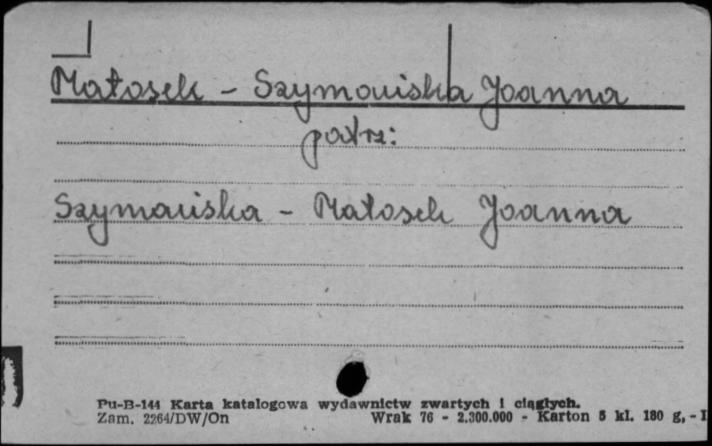 Matosek - Szymańska Joanna
patrz:
Szymańska - Matosek Joanna
Pu-B-144 Karta katalogowa wydawnictw zwartych i ciągłych.
Zam. 2264/DW/On Wrak 76 - 2.300.000 - Karton 5 kl. 180 g, - I